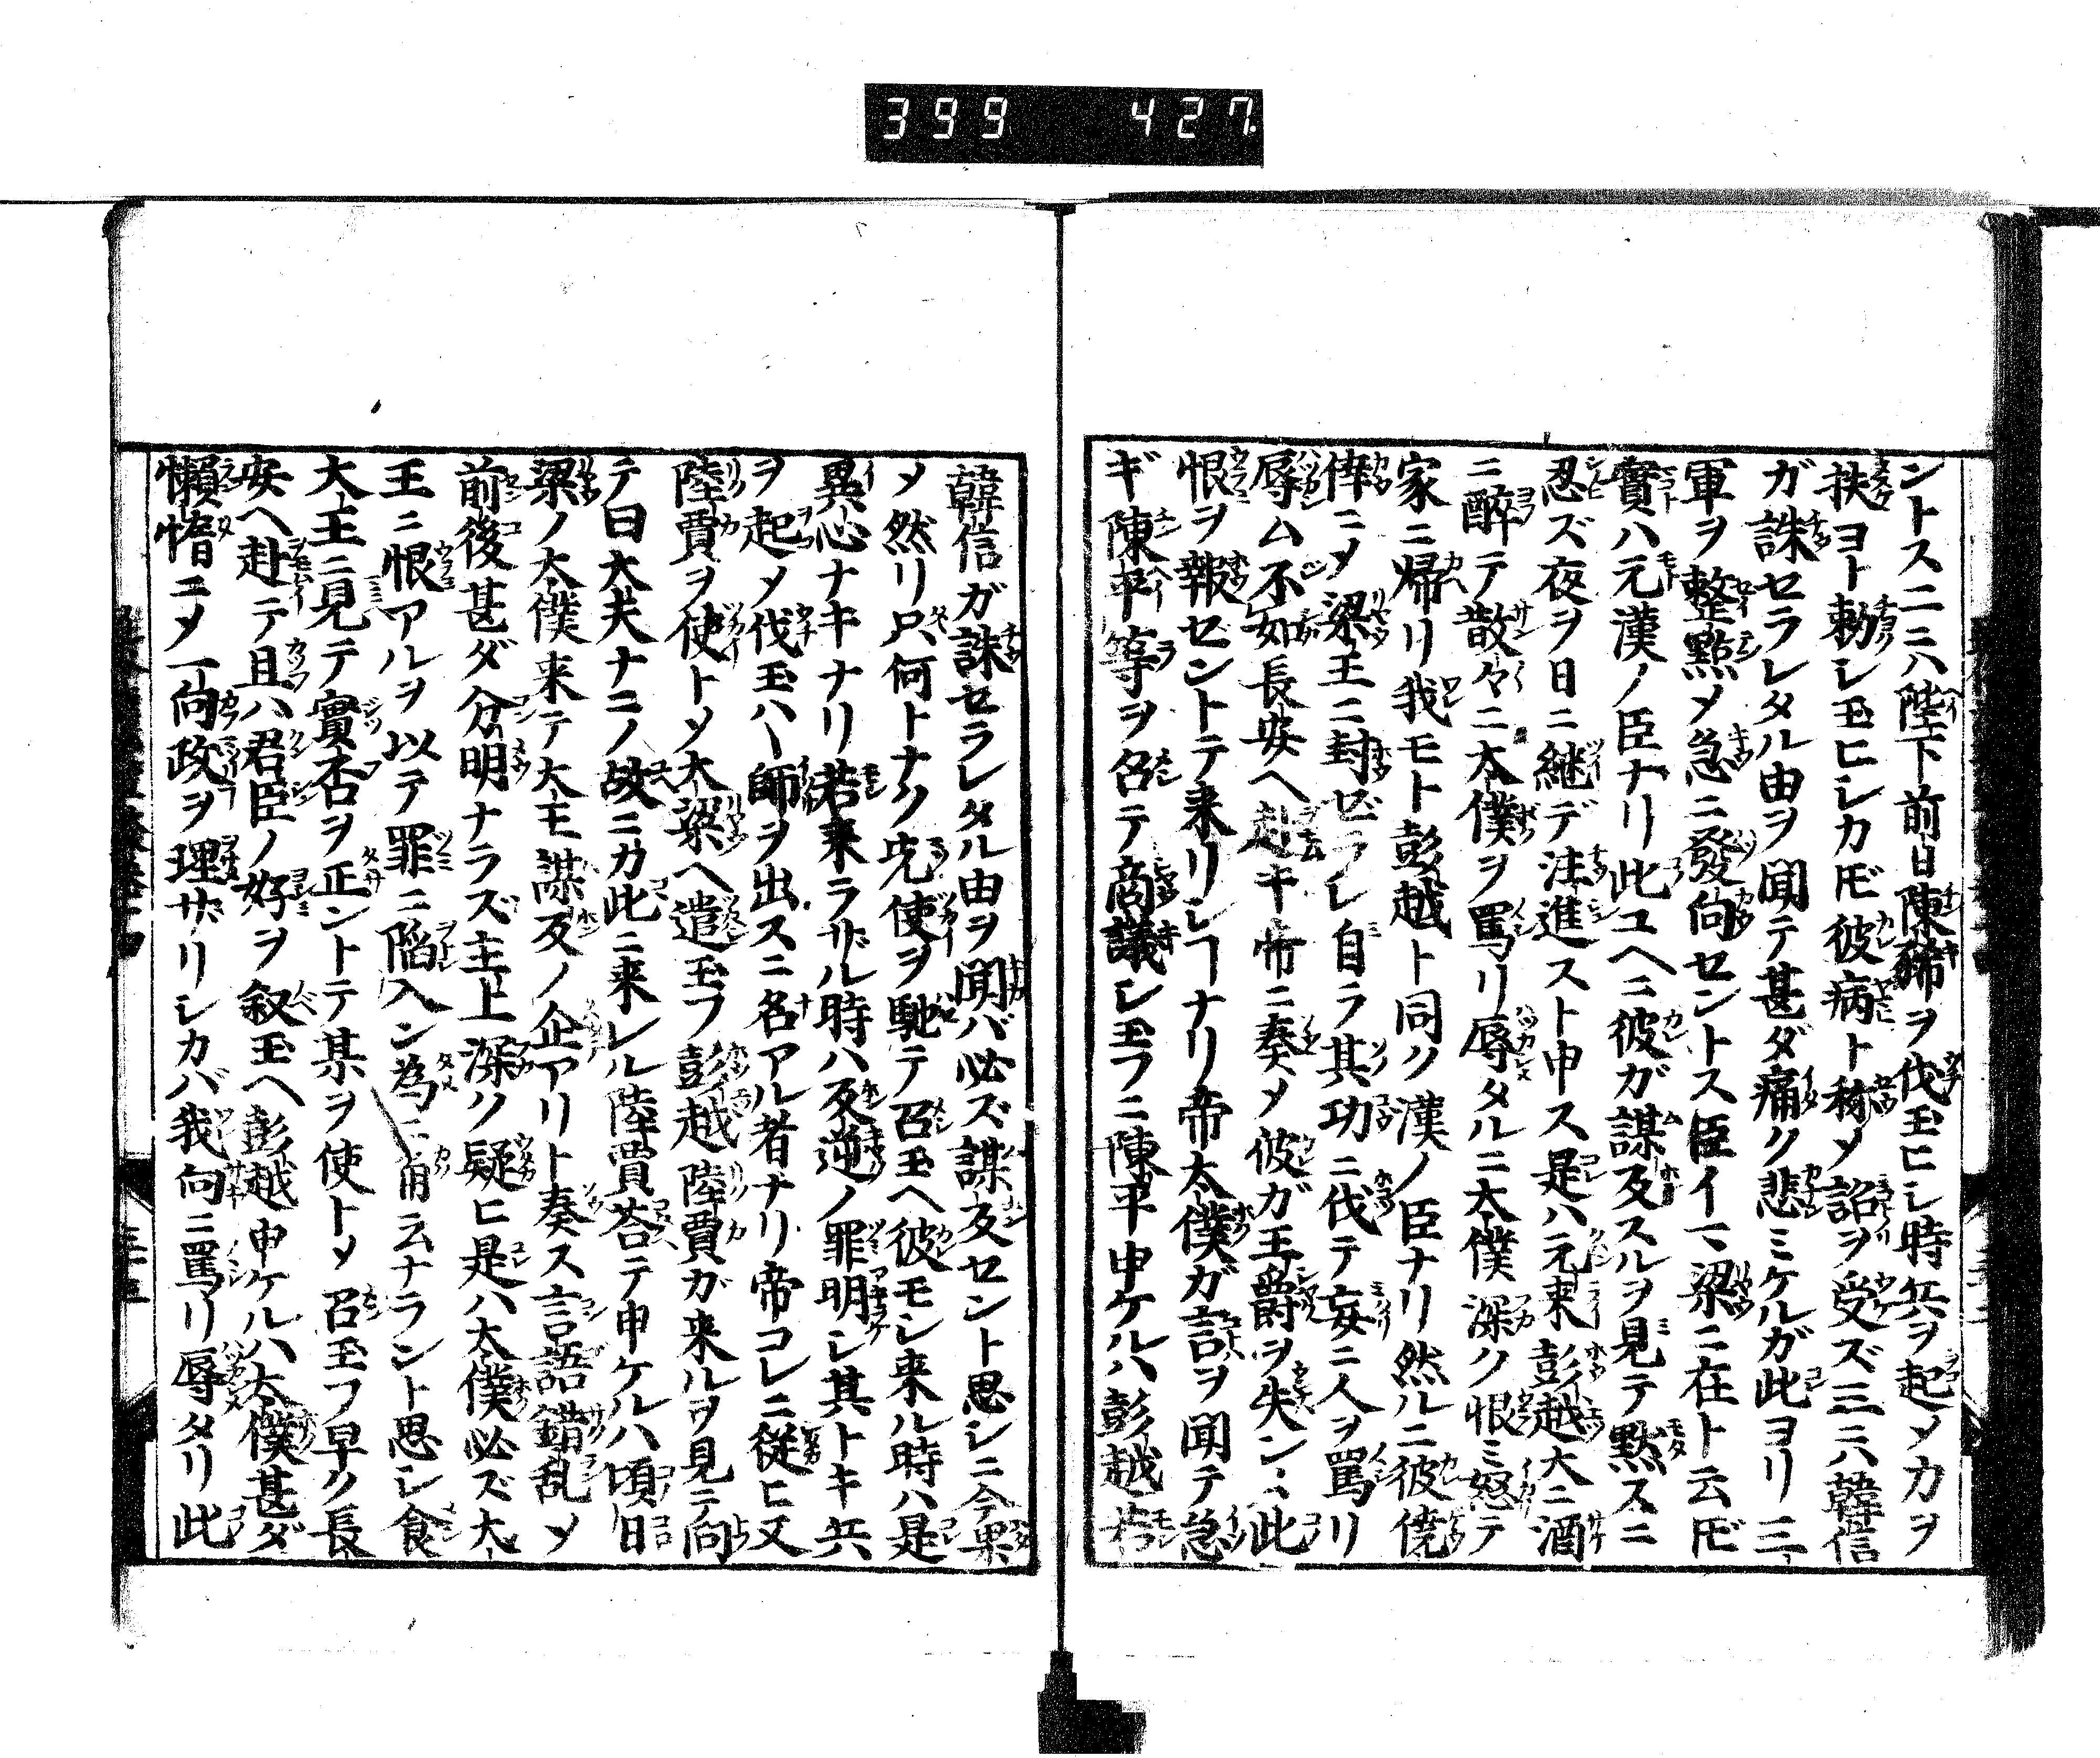 399 427
ントス二ニハ陛下前日陳豨ヲ伐玉ヒシ時兵ヲ起メカヲ
扶ヨト勅シ玉ヒシカ𪜈彼病ト称メ詔ヲ受ズ三ニハ韓信
ガ誅セラレタル由ヲ聞テ甚ダ痛ク悲ミケルガ此ヨリ三
軍ヲ整點メ急ニ發向セントス臣イマ梁ニ在ト云𪜈
實ハ元漢ノ臣ナリ此ユヘニ彼ガ謀反スルヲ見テ黙スニ
忍ズ夜ヲ日ニ継デ注進スト申ス是ハ元来彭越大ニ酒
ニ醉テ散々ニ太僕ヲ罵リ辱タルニ太僕深ク恨ミ怒テ
家ニ帰リ我モト彭越ト同ク漢ノ臣ナリ然ルニ彼僥
倖ニメ梁王ニ封ゼラレ自ラ其功ニ伐テ妄ニ人ヲ罵リ
辱ム不如長安ヘ赴キ帝ニ奏メ彼ガ王爵ヲ失ンニ此
恨ヲ報ゼントテ来リシヿナリ帝太僕ガ言ヲ聞テ急
ギ陳平等ヲ召テ商議シ玉フニ陳平申ケルハ彭越若
韓信ガ誅セラレタル由ヲ聞バ必ズ謀反セント思シニ今果
メ然リ只何トナク先使ヲ馳テ召玉ヘ彼モシ来ル時ハ是
異心ナキナリ若来ラザル時ハ反逆ノ罪明シ其トキ兵
ヲ起メ伐玉ハヾ師ヲ出スニ名アル者ナリ帝コレニ従ヒ又
陸賈ヲ使トメ大梁ヘ遣玉フ彭越陸賈ガ来ルヲ見テ向
テ曰大夫ナニノ故ニカ此ニ来レル陸賈荅テ申ケルハ頃日
梁ノ大僕来テ大王謀反ノ企アリト奏ス言語錯乱メ
前後甚ダ分明ナラズ主上深ク疑ヒ是ハ大僕必ズ大
王ニ恨アルヲ以テ罪ニ陥入ン為ニ甬云ナラント思シ食
大王ニ見テ實否ヲ正ントテ某ヲ使トメ召玉フ早ク長
安ヘ赴テ且ハ君臣ノ好ヲ叙玉ヘ彭越申ケルハ大僕甚ダ
懶惰ニメ一向政ヲ理ザリシカバ我向ニ罵リ辱タリ此